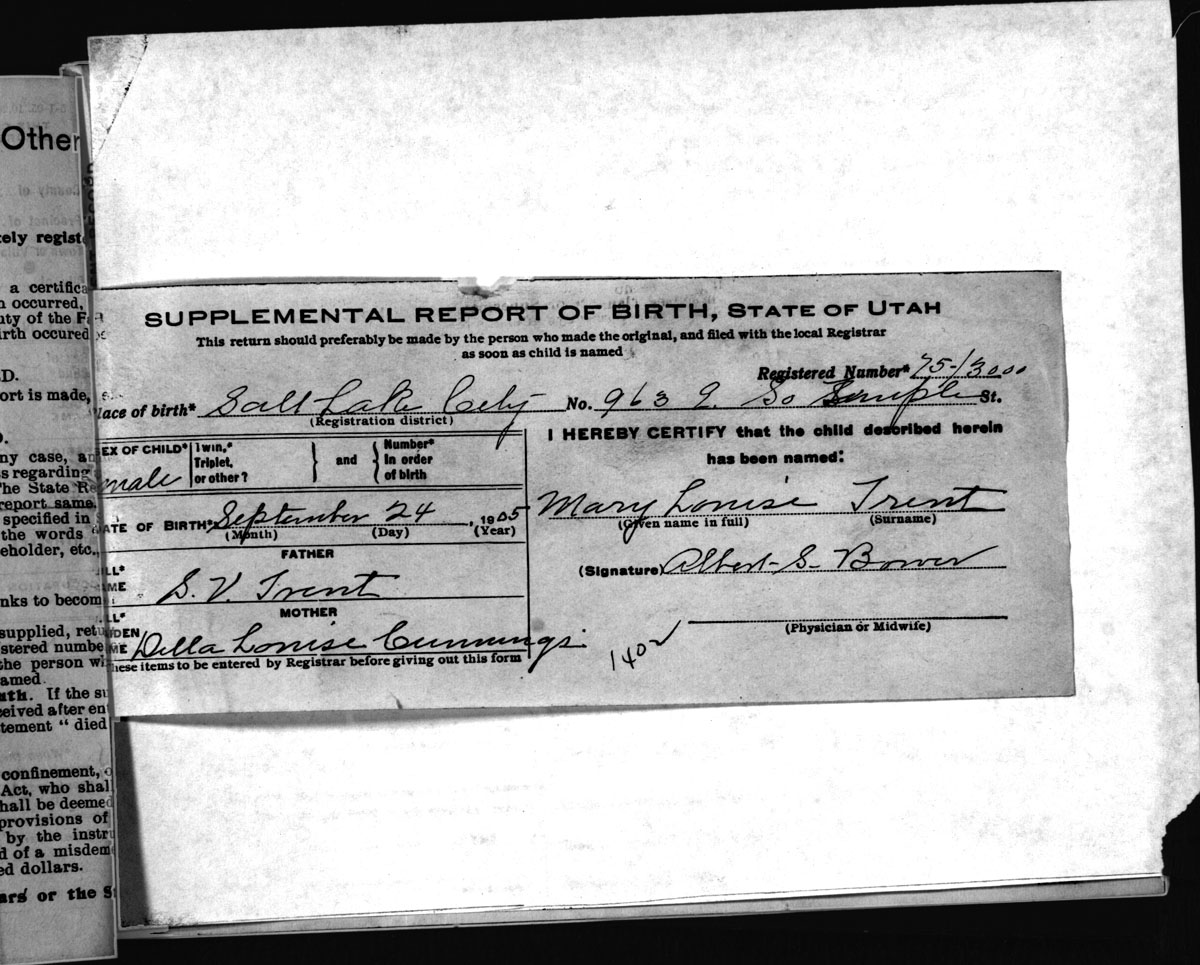 Other
tely regist
a certifica
n occurred,
uty of the Fa
irth occured
D.
ort is made,
ny case, an
s regarding
The State Re
report same.
specified in
the words
eholder, etc.,
nks to becom
supplied, retu
stered numbe
the person wi
amed.
ath. If the su
ceived after en
tement “ died
confinement,
Act, who shal
hall be deemed
provisions of
by the instru
d of a misdem
ed dollars.
ars or the S
SUPPLEMENTAL REPORT OF BIRTH, STATE OF UTAH
This return should preferably be made by the person who made the original, and filed with the local Registrar
as soon as child is named
Registered Number*
lace of birth* Salt Lake City No. 963 So Temple St.
(Registration district)
EX OF CHILD* male
Twin,* Triplet, or other? } and { Number* In order of birth
ATE OF BIRTH* September 24, 1905
(Month) (Day) (Year)
FATHER
LL*
ME S. V. Trent
MOTHER
LL*
DEN
ME Della Louise Cummings
hese items to be entered by Registrar before giving out this form
I HEREBY CERTIFY that the child described herein
has been named:
Mary Louise Trent
(Given name in full) (Surname)
(Signature) Albert S. Bower
(Physician or Midwife)
1402